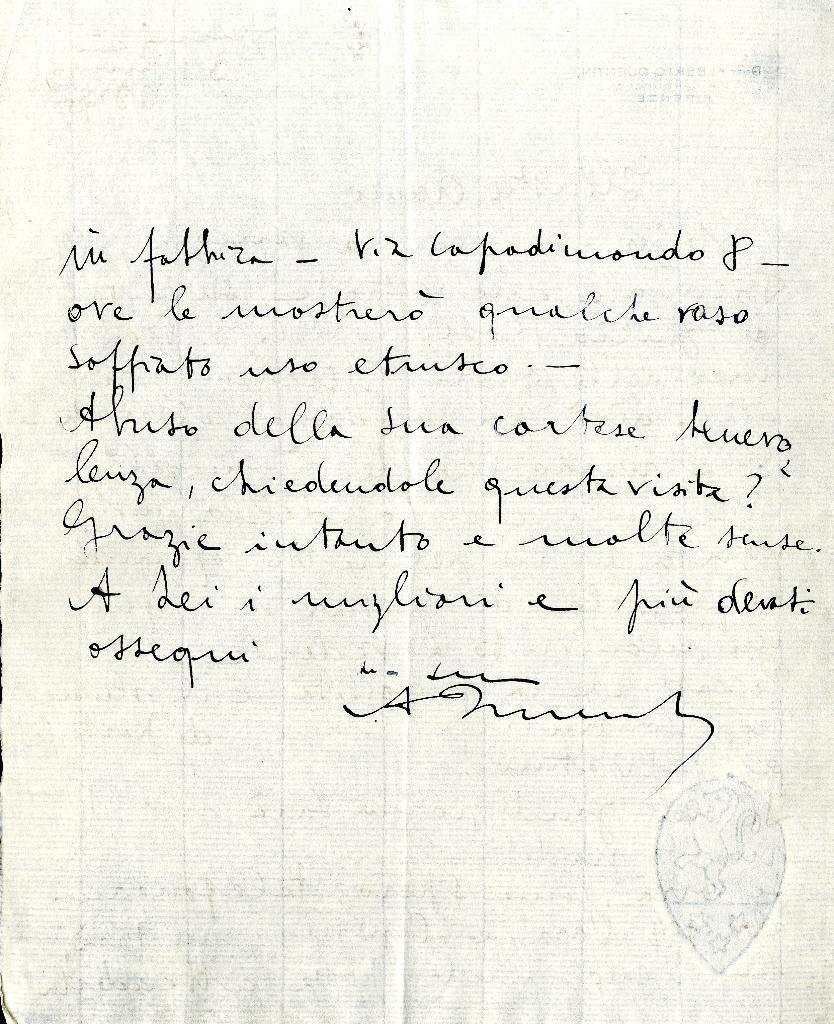 in fabbrica – Via Capodimondo 8 –
ove le mostrerò qualche vaso
soffiato uso etrusco. –
Abuso della sua cortese benevo
lenza, chiedendole questa visita?
Grazie intanto e molte scuse.
A Lei i migliori e più devoti
ossequi
suo